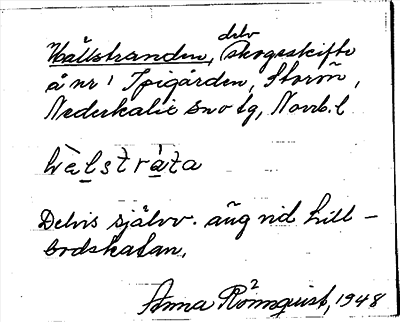 Hällstranden, delv skogsskifte
å nr 1 Spigården, Storön,
Nederkalix sn o tg, Norrb. l
hä̀lstrà̀ta
Delvis självv. äng vid Lill-
bodskatan.
Anna Rönnquist, 1948